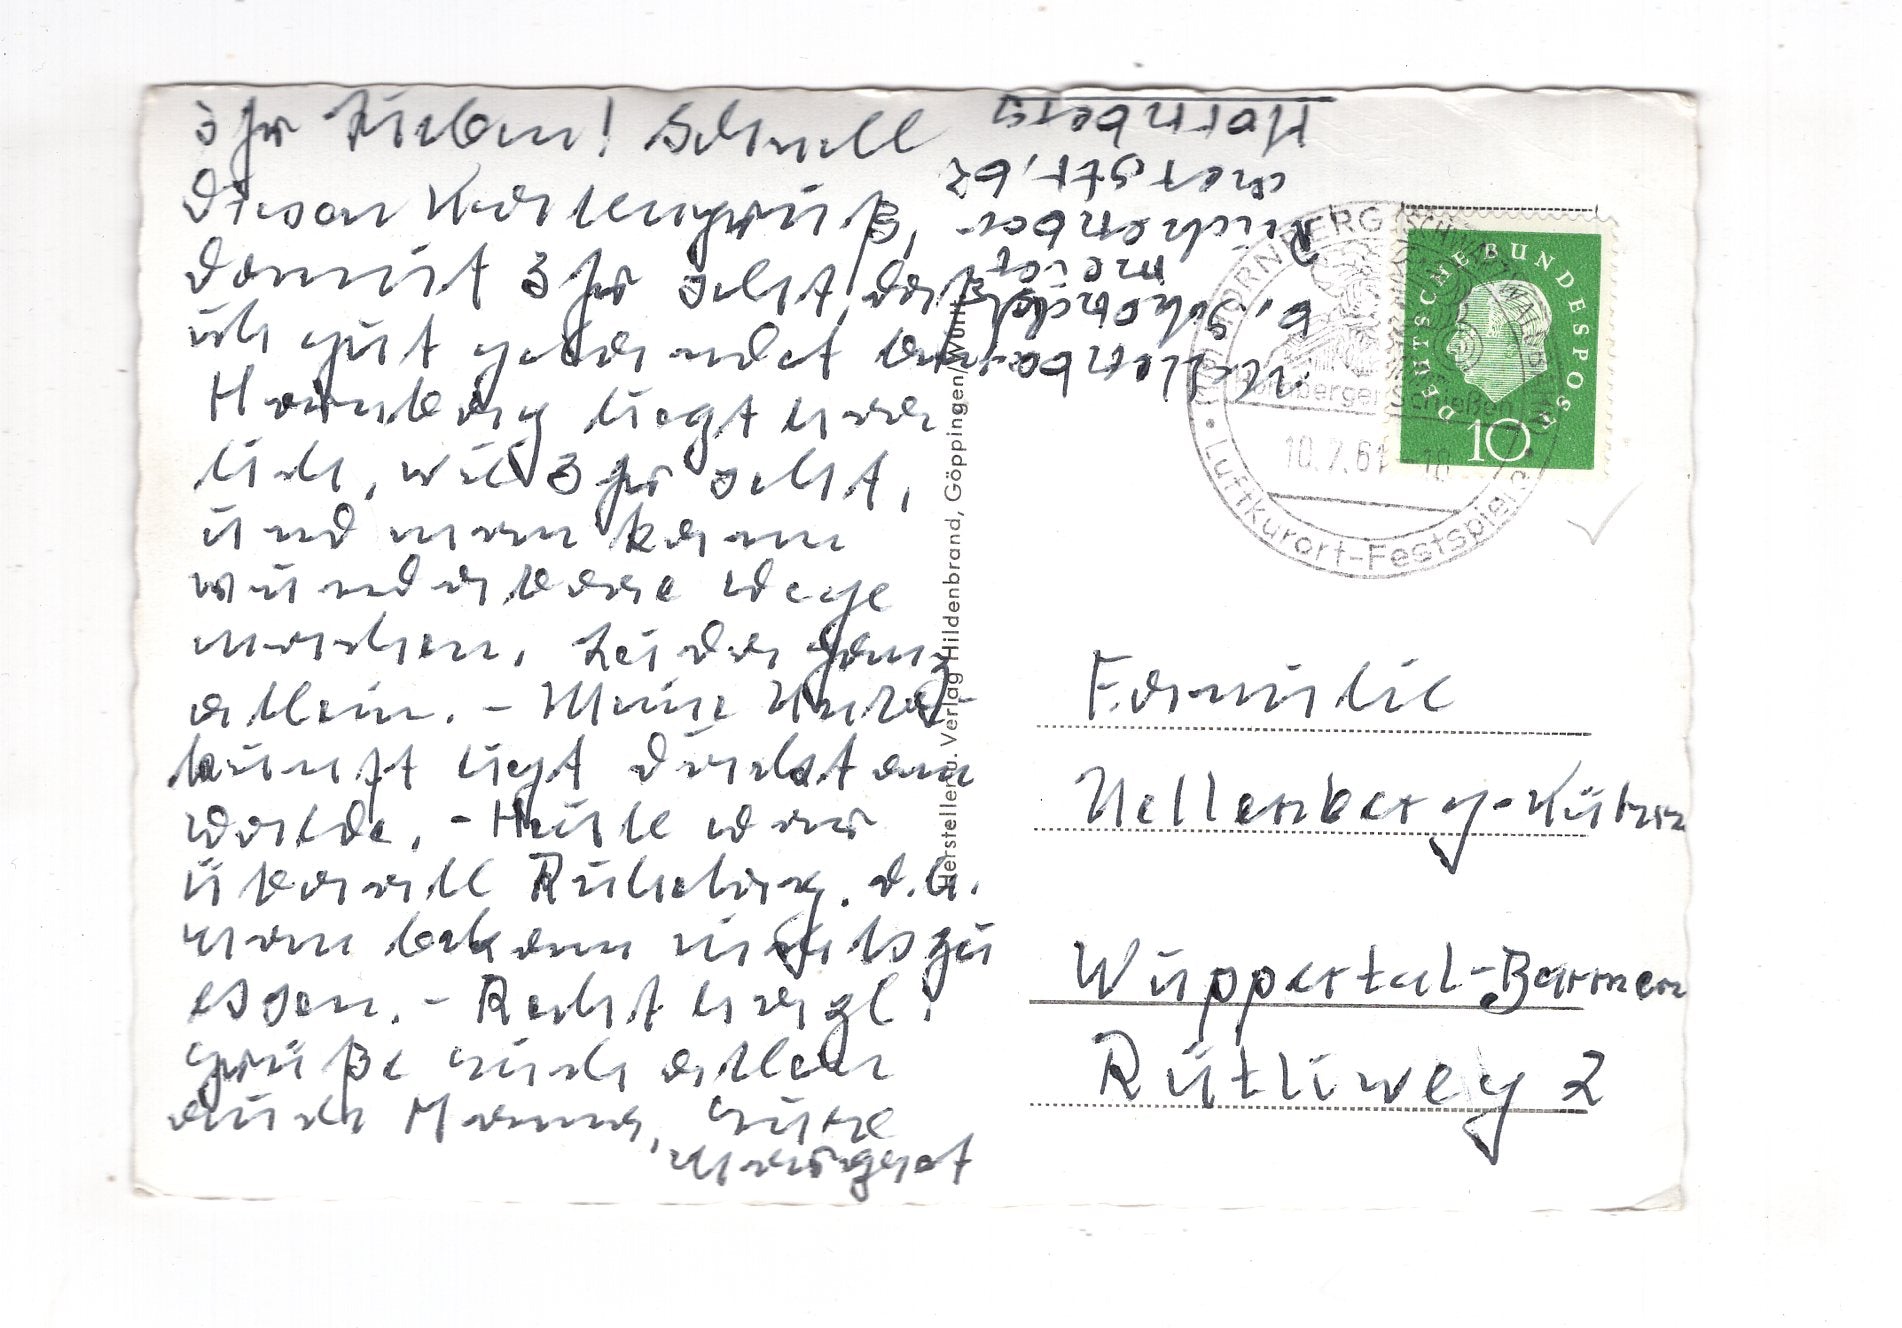 Ihr Lieben! Schnell
diesen Kartengruß,
damit Ihr seht, daß
ich gut gelandet bin.
Hornberg liegt herr
lich, wie Ihr seht,
und man kann
wunderbare Wege
machen. Leider ganz
allein. – Meine Unter-
kunft liegt direkt am
Walde. – Heute war
überall Ruhetag. d.h.
man bekam nichts zu
essen. – Recht herzl.
Grüße Euch allen
auch Mama, Eure
Margret
Nellenberg
b. Schondel
meier
Reichenbac
herstr. 62
Hornberg
Hersteller u. Verlag Hildenbrand, Göppingen/Württ.
HORNBERG (SCHWARZWALDBAHN)
Hornberger Schießen
10.7.61-18
Luftkurort-Festspiele
DEUTSCHE BUNDESPOST
10
Familie
Nellenberg-Kühn
Wuppertal-Barmen
Rütliweg 2